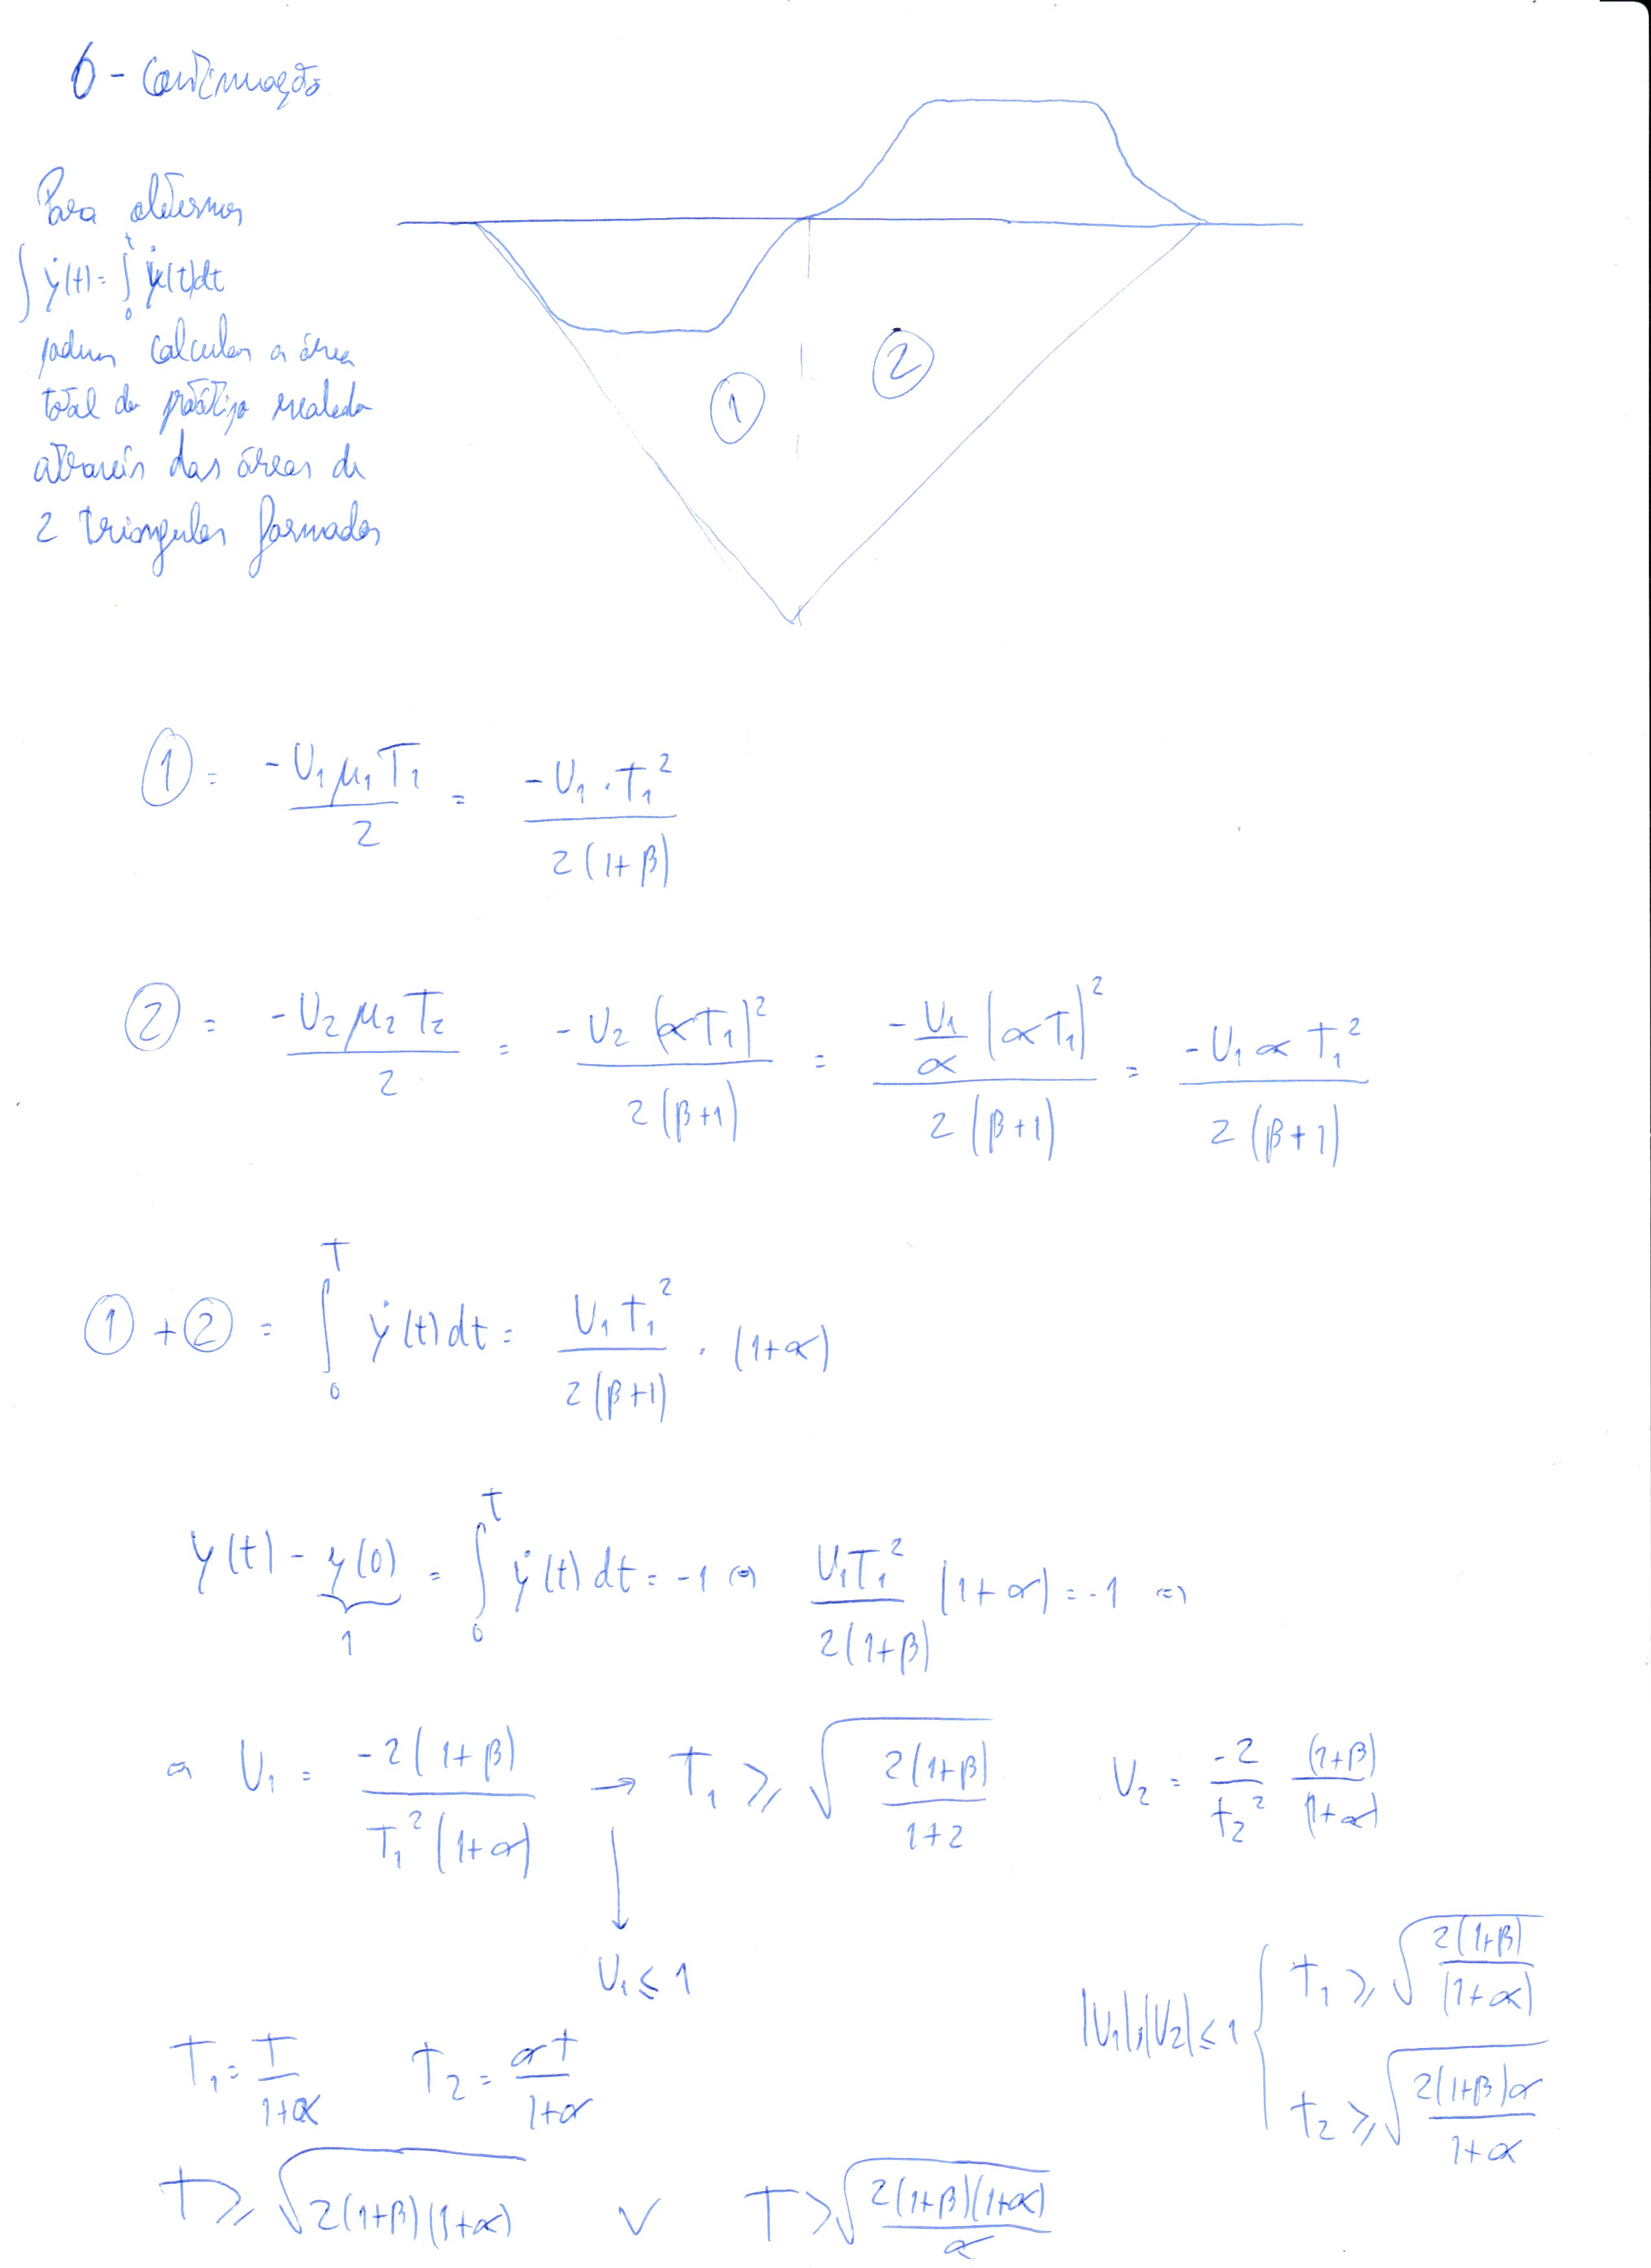 6 - Continuação
Para obtermos
∫ ẏ(t) = ∫₀ᵗ ẏ(t)dt
calcular a área
total do
através das áreas de
2 triangulos formados
① ②
① = -U₁μ₁T₁ / 2 = -U₁ · T₁² / 2(1+β)
② = -U₂μ₂T₂ / 2 = -U₂ (αT₁)² / 2(β+1) = -U₁/α (αT₁)² / 2(β+1) = -U₁ α T₁² / 2(β+1)
① + ② = ∫₀ᵀ ẏ(t)dt = U₁T₁² / 2(β+1) · (1+α)
y(t) - y(0) = ∫₀ᵀ ẏ(t) dt = -1 ⇔ U₁T₁² / 2(1+β) (1+α) = -1 ⇔
1
⇔ U₁ = -2(1+β) / T₁²(1+α) → T₁ ⩾ √(2(1+β) / 1+2) U₂ = -2 / t₂² (1+β) / (1+α)
U₁ ≤ 1
|U₁|,|U₂| ≤ 1 { t₁ ⩾ √(2(1+β) / (1+α))
t₂ ⩾ √(2(1+β)α / 1+α)
T₁ = T / 1+α T₂ = αT / 1+α
T ⩾ √(2(1+β)(1+α)) ∨ T > √(2(1+β)(1+α) / α)